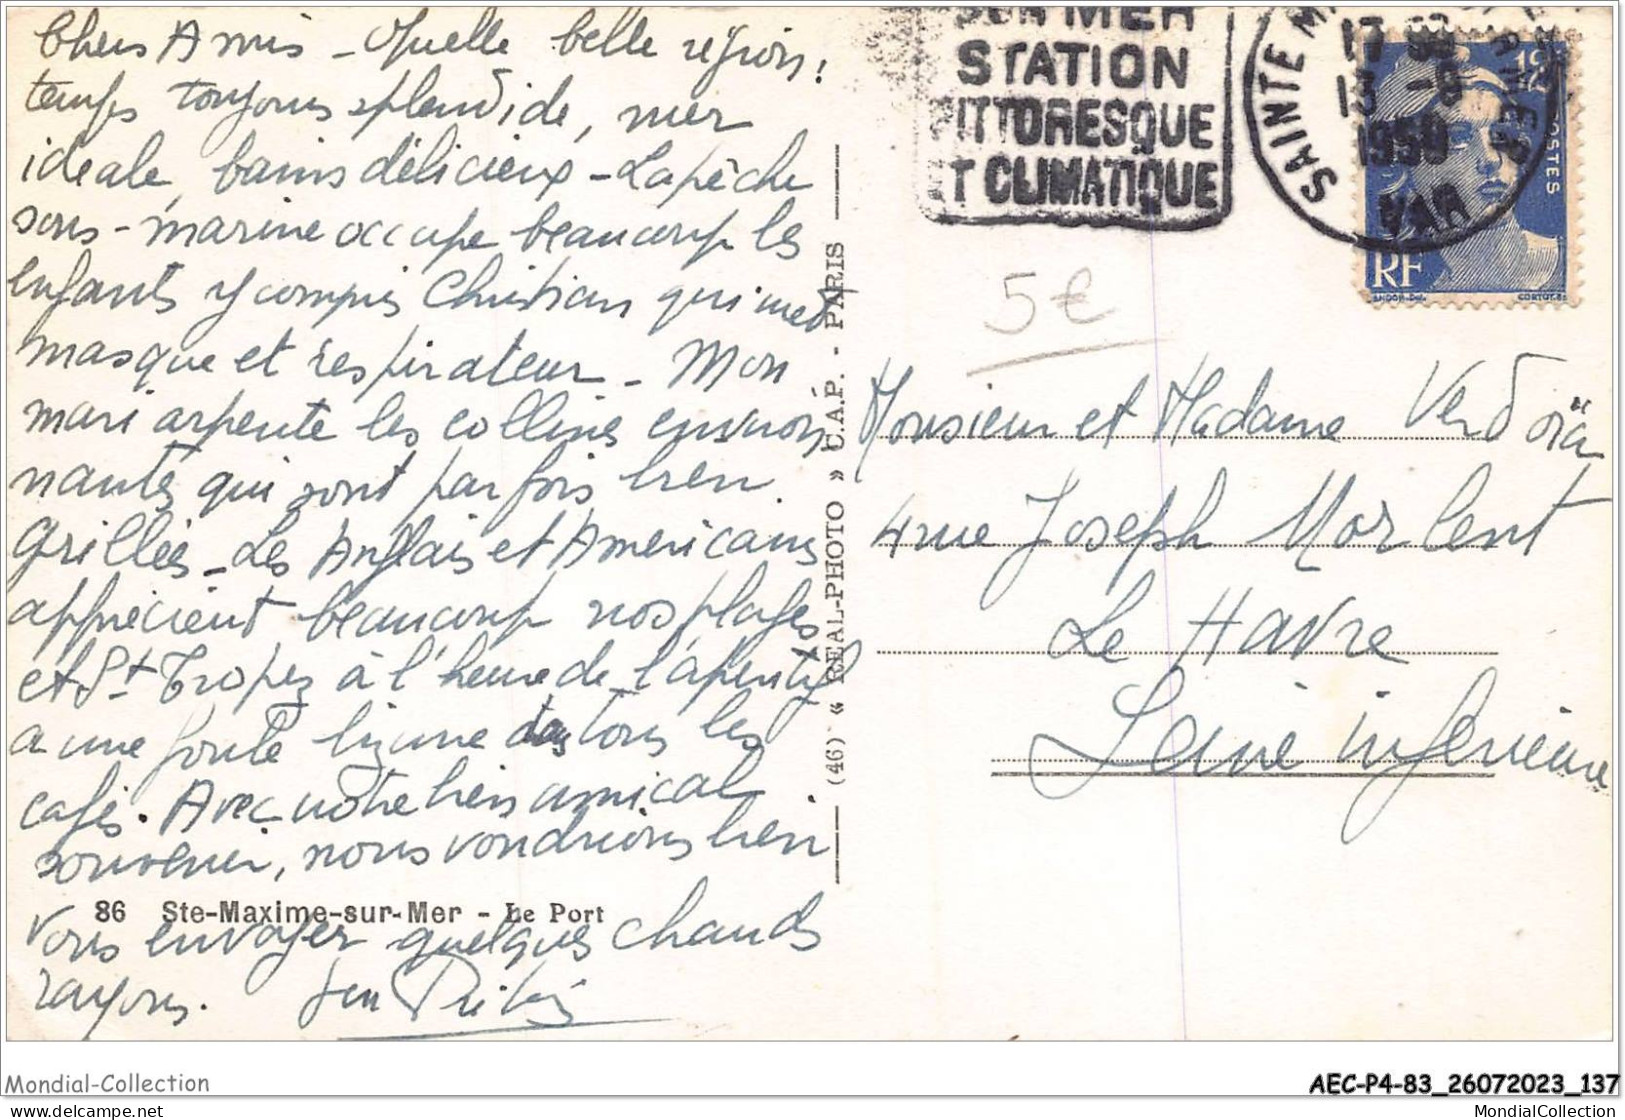 Chers Amis - Quelle belle région!
temps toujours splendide, mer
idéale, bains délicieux - La pêche
sous-marine occupe beaucoup les
enfants y compris Christian qui met
masque et respirateur - Mon
mari arpente les collines environ
nantes qui sont parfois bien
Grillées - Les Anglais et Américains
apprécient beaucoup nos plages
et St Tropez à l'heure de l'apéritif
a une foule tous les
cafés. Avec notre bien amical
souvenir, nous voudrions bien
86 Ste-Maxime-sur-Mer - Le Port
vous envoyer quelques chauds
rayons.
(46) « REAL-PHOTO » C.A.P. - PARIS
SUR MER
STATION
PITTORESQUE
ET CLIMATIQUE
SAINTE M
13 -9
1950
VAR
POSTES
RF
5€
Monsieur et Madame
4 rue Joseph Morlent
Le Havre
Seine inférieure
Mondial-Collection
AEC-P4-83_26072023_137
MPHOTOINC / MondialCollection